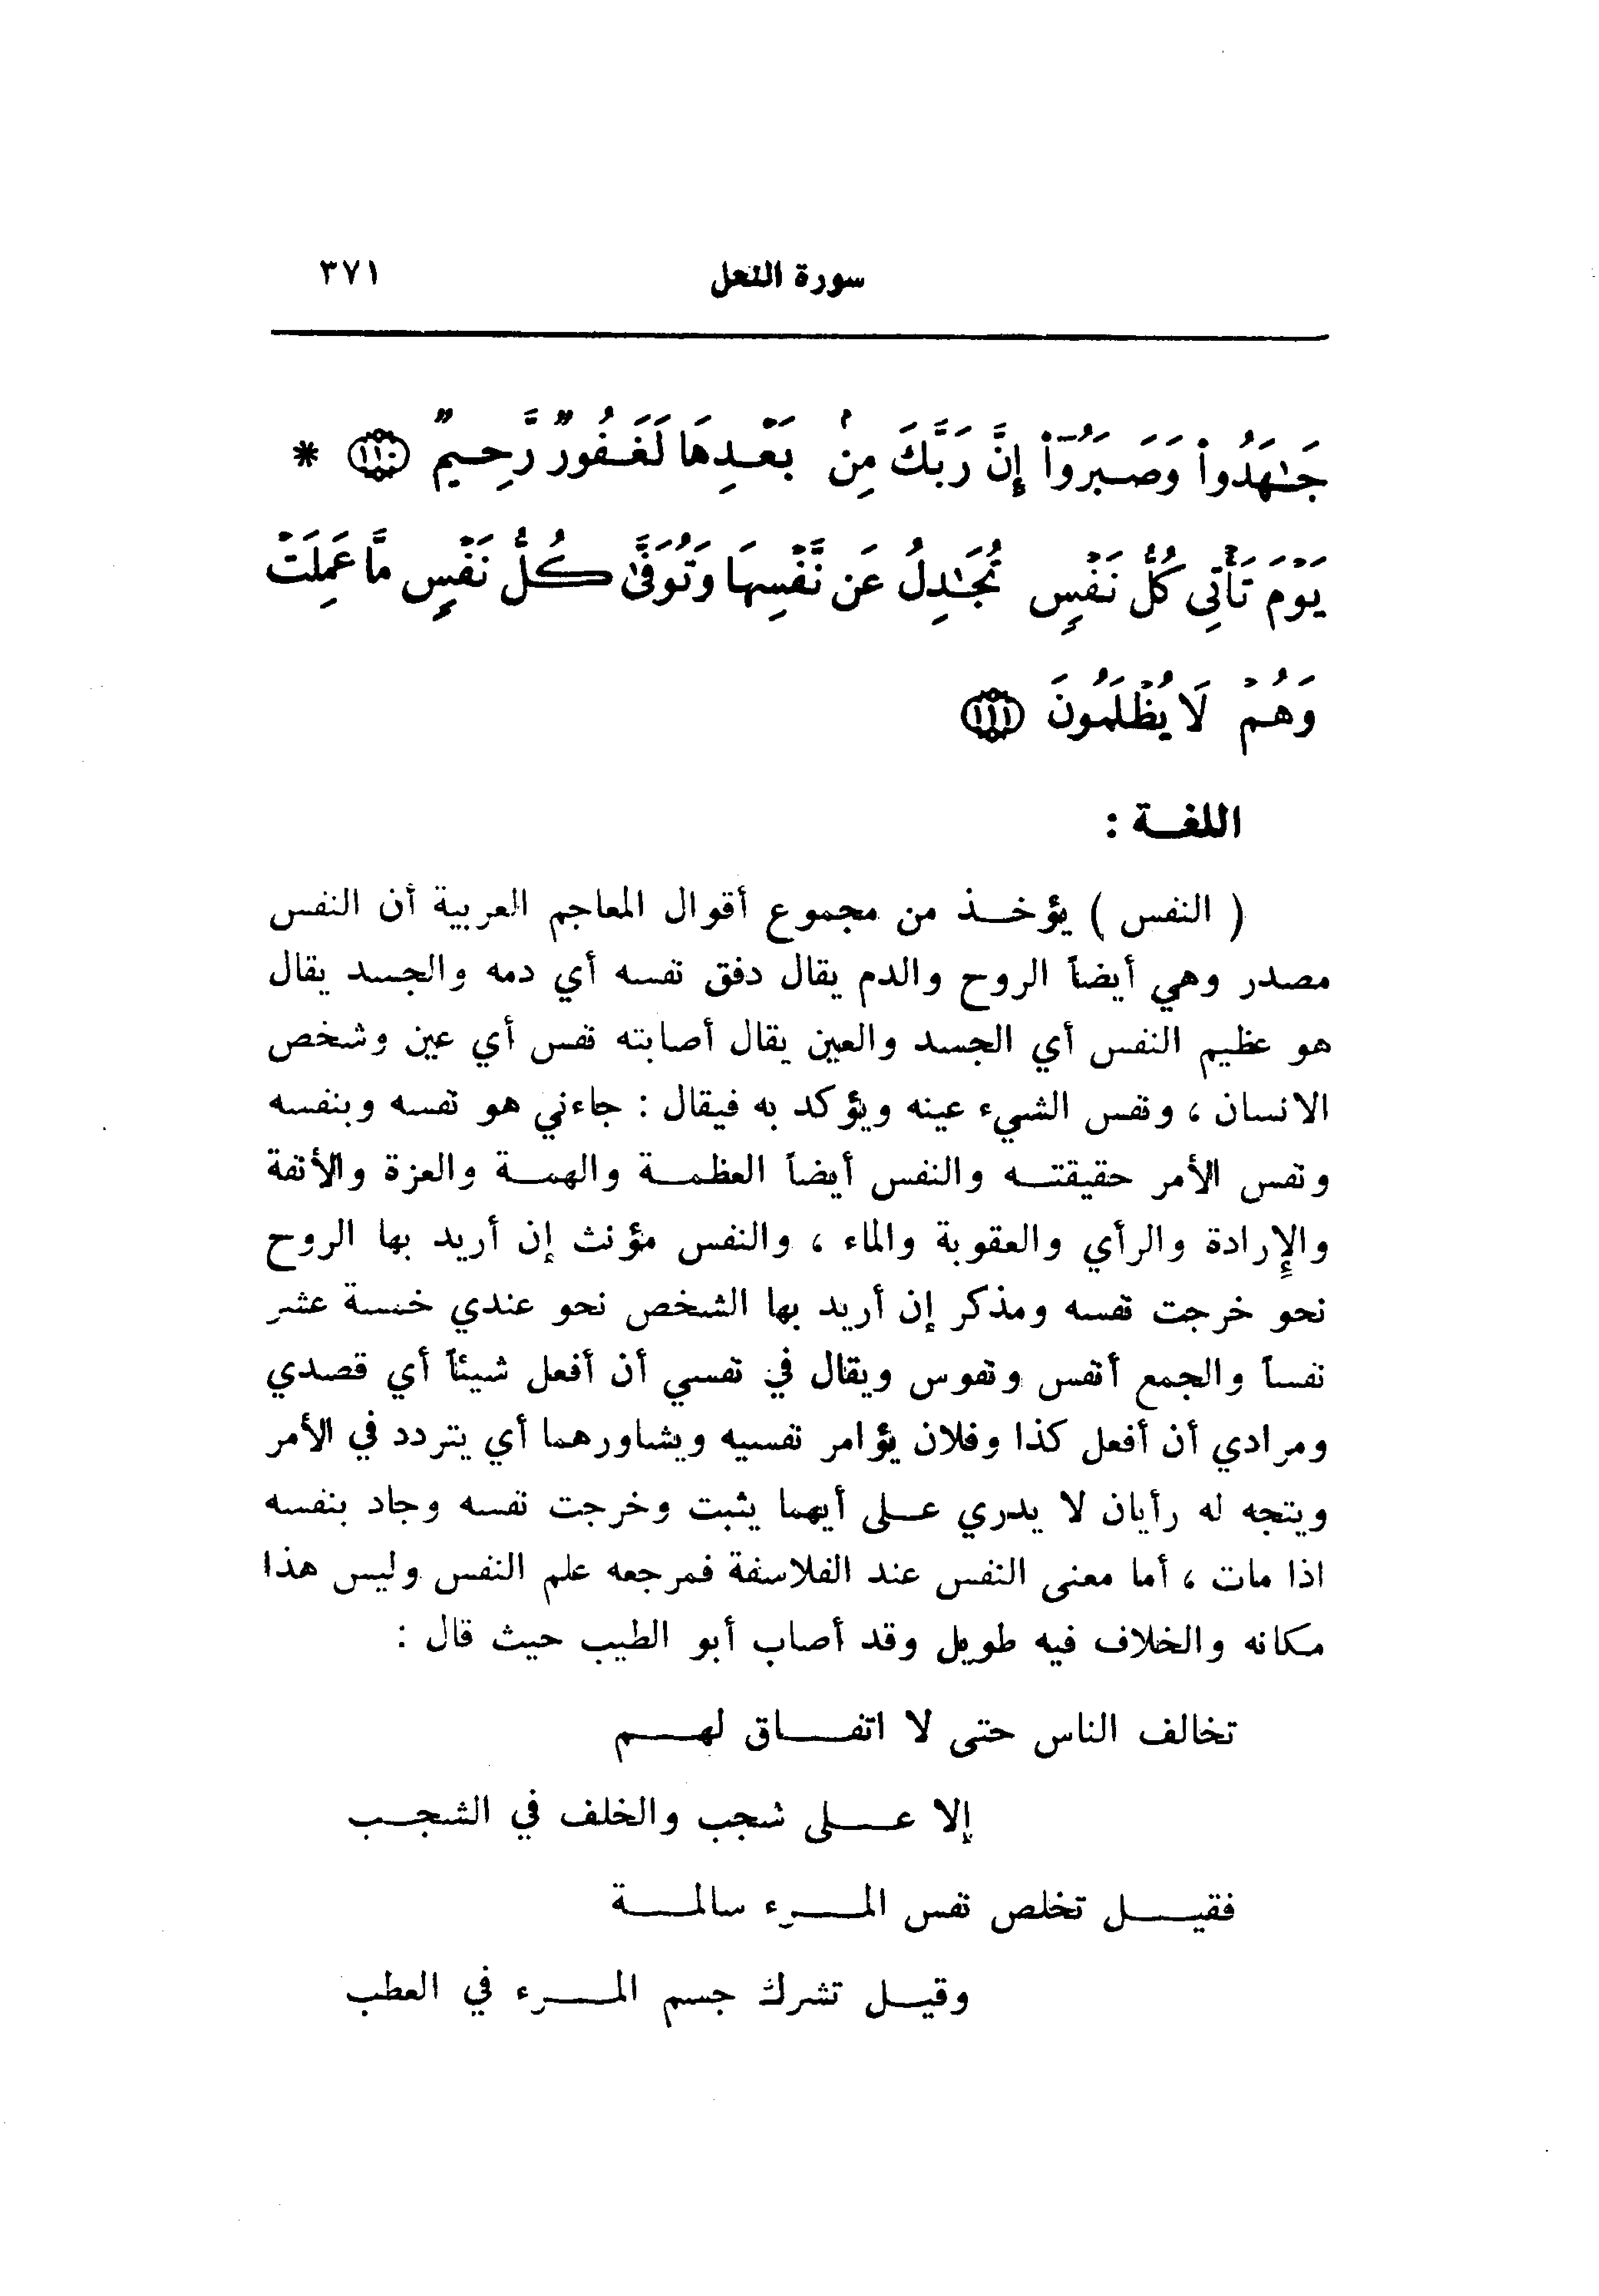 سورة النحل ٣٧١
جَـٰهَدُوا۟ وَصَبَرُوٓا۟ إِنَّ رَبَّكَ مِنۢ بَعْدِهَا لَغَفُورٌ رَّحِيمٌ ﴿١١٠﴾ *
يَوْمَ تَأْتِى كُلُّ نَفْسٍ تُجَـٰدِلُ عَن نَّفْسِهَا وَتُوَفَّىٰ كُلُّ نَفْسٍ مَّا عَمِلَتْ
وَهُمْ لَا يُظْلَمُونَ ﴿١١١﴾
اللغة :
( النفس ) يؤخذ من مجموع أقوال المعاجم العربية أن النفس
مصدر وهي أيضاً الروح والدم يقال دفق نفسه أي دمه والجسد يقال
هو عظيم النفس أي الجسد والعين يقال أصابته نفس أي عين وشخص
الانسان ، ونفس الشيء عينه ويؤكد به فيقال : جاءني هو نفسه وبنفسه
ونفس الأمر حقيقته والنفس أيضاً العظمة والهمة والعزة والأنفة
والإرادة والرأي والعقوبة والماء ، والنفس مؤنث إن أريد بها الروح
نحو خرجت نفسه ومذكر إن أريد بها الشخص نحو عندي خمسة عشر
نفساً والجمع أنفس ونفوس ويقال في نفسي أن أفعل شيئاً أي قصدي
ومرادي أن أفعل كذا وفلان يؤامر نفسيه ويشاورهما أي يتردد في الأمر
ويتجه له رأيان لا يدري على أيهما يثبت وخرجت نفسه وجاد بنفسه
اذا مات ، أما معنى النفس عند الفلاسفة فمرجعه علم النفس وليس هذا
مكانه والخلاف فيه طويل وقد أصاب أبو الطيب حيث قال :
تخالف الناس حتى لا اتفاق لهم
إلا على شجب والخلف في الشجب
فقيل تخلص نفس المرء سالمة
وقيل تشرك جسم المرء في العطب